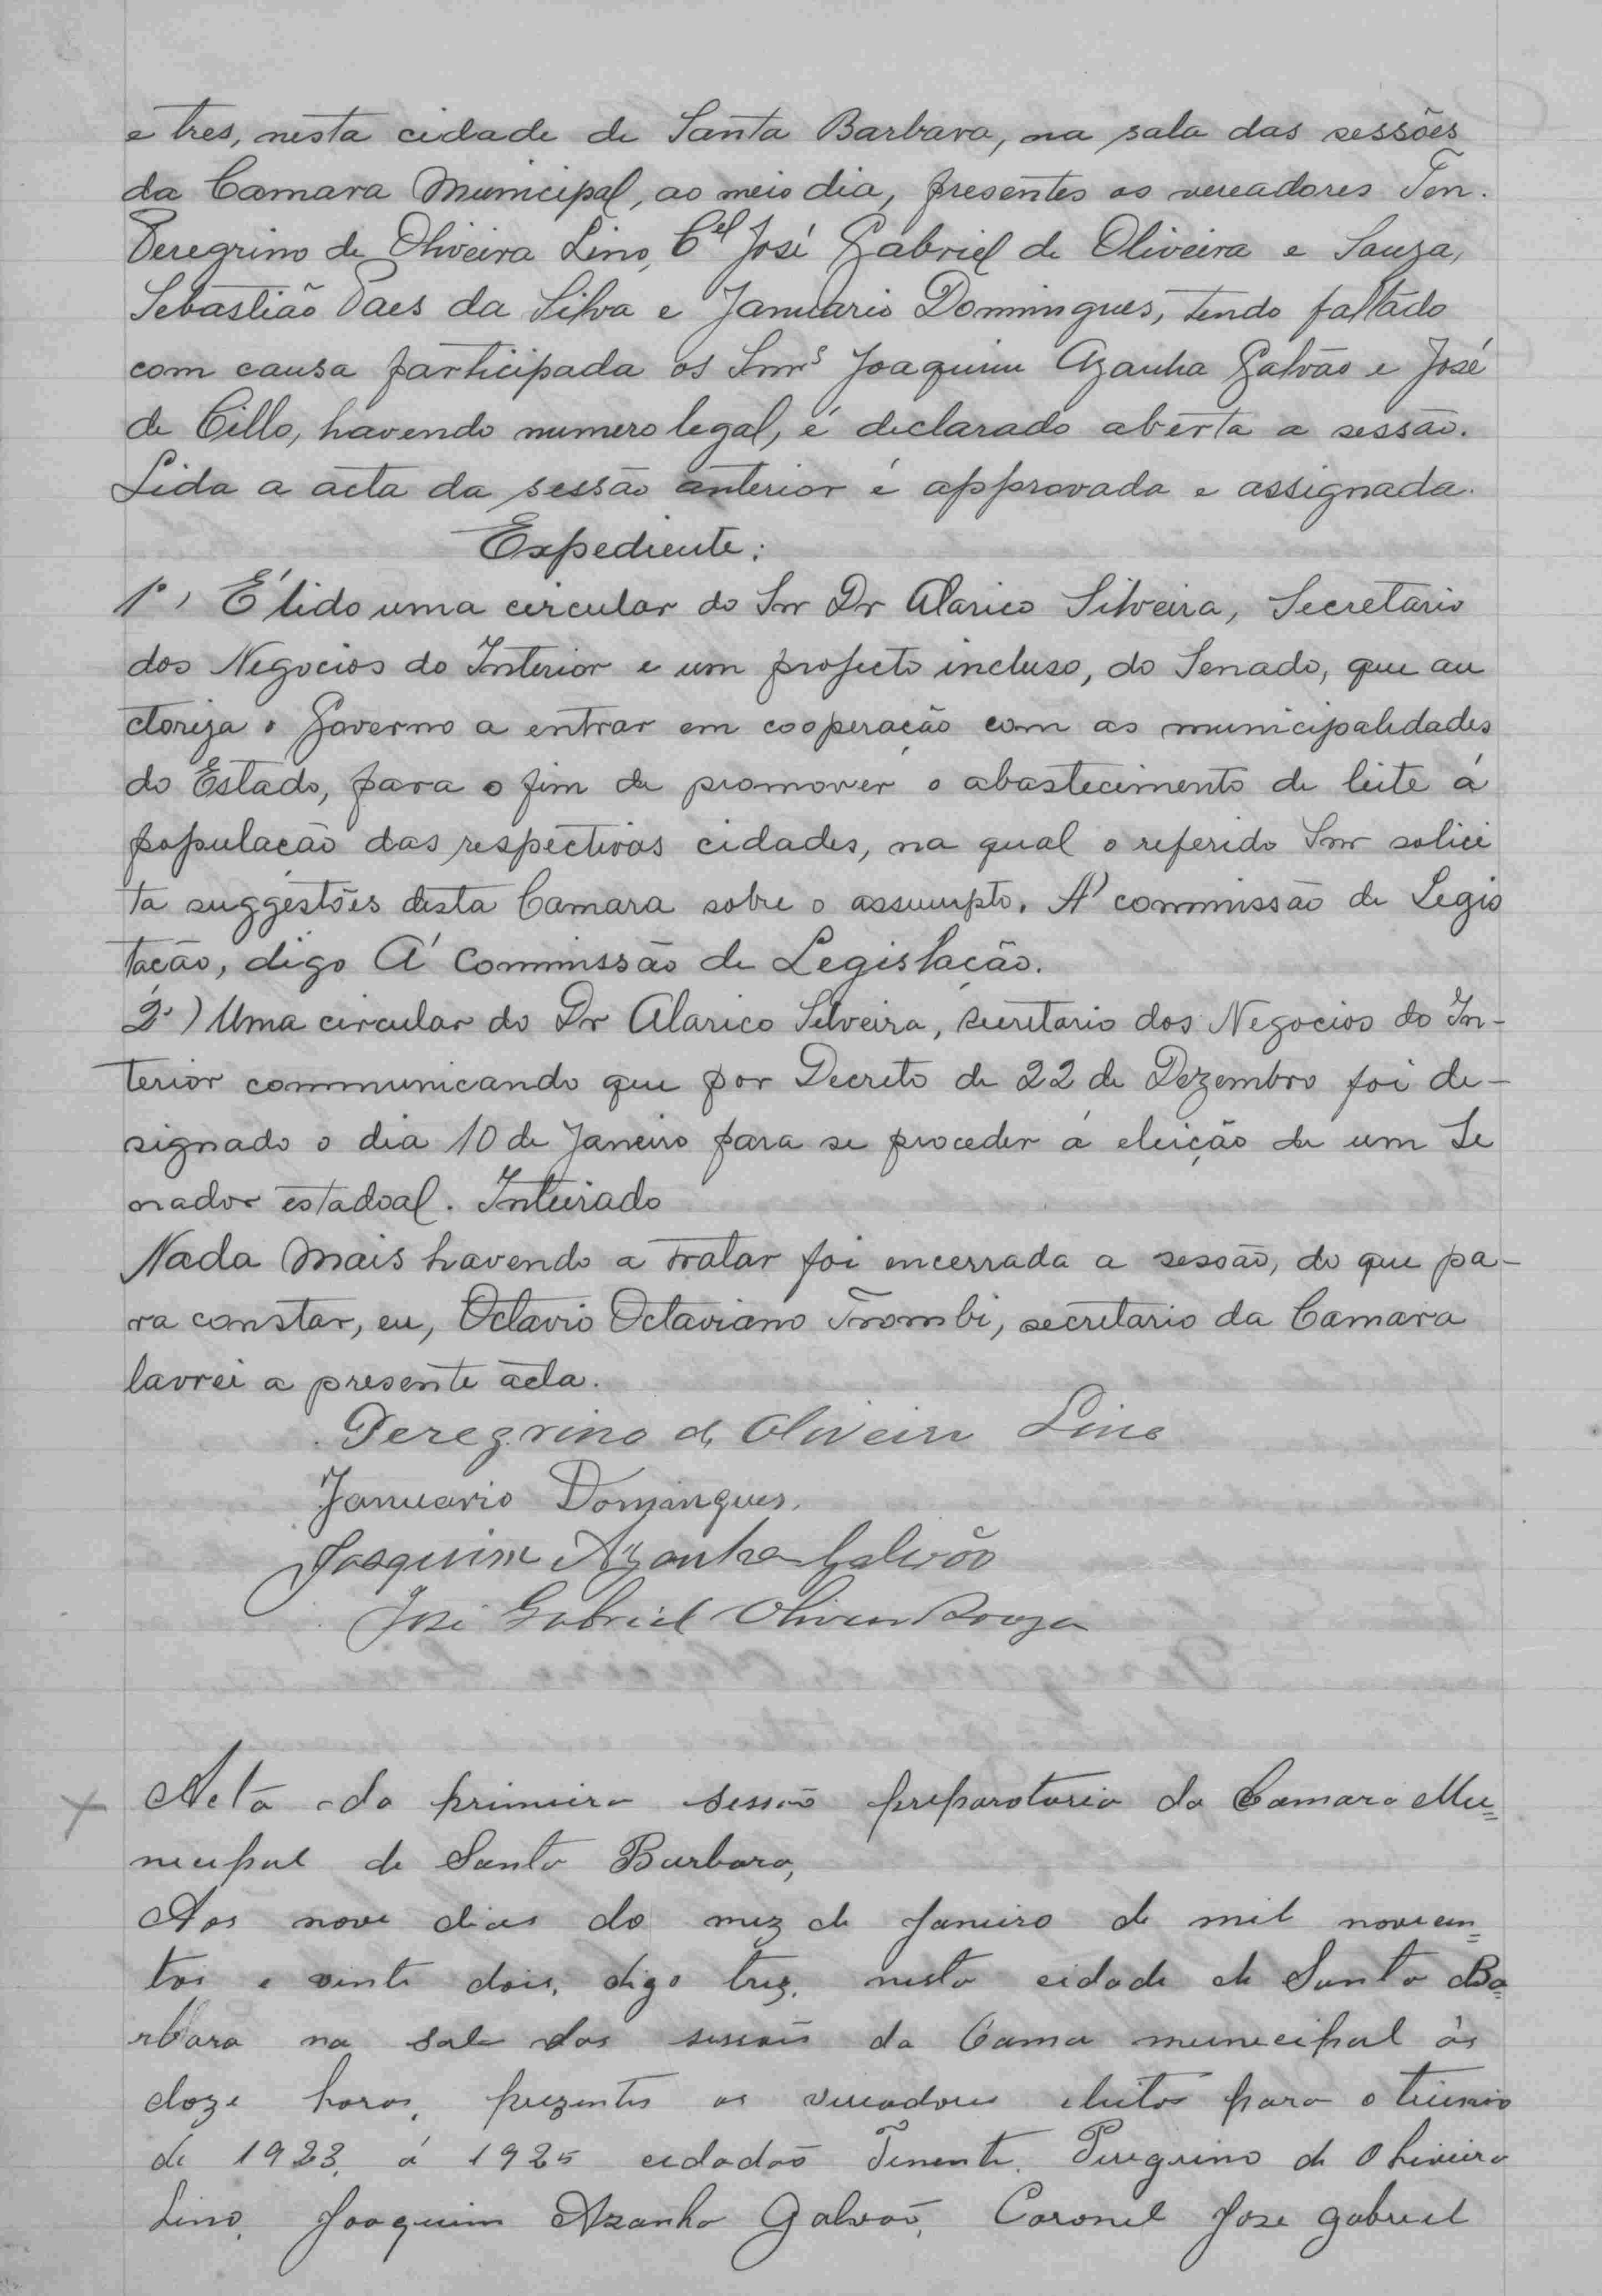 e tres, nesta cidade de Santa Barbara, na sala das sessões
da Camara Municipal, ao meio dia, presentes os vereadores Ten.
Peregrino de Oliveira Lino, Cel José Gabriel de Oliveira e Souza,
Sebastião Paes da Silva e Januario Domingues, tendo faltado
com causa participada os Snrs Joaquim Azanha Galvão e José
de Cillo, havendo numero legal, é declarado aberta a sessão.
Lida a acta da sessão anterior é approvada e assignada.
Expediente:
1º, É lido uma circular do Snr Dr Alarico Silveira, Secretario
dos Negocios do Interior e um projecto incluso, do Senado, que au
ctoriza o Governo a entrar em cooperação com as municipalidades
do Estado, para o fim de promover o abastecimento de leite á
população das respectivas cidades, na qual o referido Snr solici
ta suggestões desta Camara sobre o assumpto. A' commissão de Legis
tação, digo A' Commissão de Legislação.
2º) Uma circular do Dr Alarico Silveira, secretario dos Negocios do In-
terior communicando que por Decreto de 22 de Dezembro foi de-
signado o dia 10 de Janeiro para se proceder á eleição de um Se
nador estadoal. Inteirado
Nada mais havendo a tratar foi encerrada a sessão, do que pa-
ra constar, eu, Octavio Octaviano Trombi, secretario da Camara
lavrei a presente acta.
Peregrino de Oliveira Lino
Januario Domingues.
Joaquim Azanha Galvão
José Gabriel Oliveira Souza
Acta da primeira sessão preparatoria da Camara Mu=
necipal de Santa Barbara,
Aos nove dias do mez de Janeiro de mil novecen=
tos e vinte dois, digo trez, nesta cidade de Santa Ba=
rbara na sala das sessois da Cama municipal às
doze horas, prezentes os vereadores eleitos para o trienio
de 1923, á 1925 cidadão Tenente Peregrino de Oliveira
Lino, Joaquim Azanha Galvão, Coronel Jose Gabriel